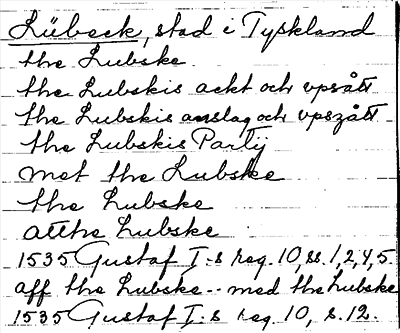 Lübeck, stad i Tyskland
the Lubske.
the Lubskis ackt och vpsått
the Lubskis anslag och vpszått
the Lubskis Partij
mot the Lubske
the Lubske
atthe Lubske
1535 Gustaf I:s reg. 10, ss. 1, 2, 4, 5.
aff the Lubske -- med the Lubske
1535 Gustaf I:s reg. 10, s. 12.